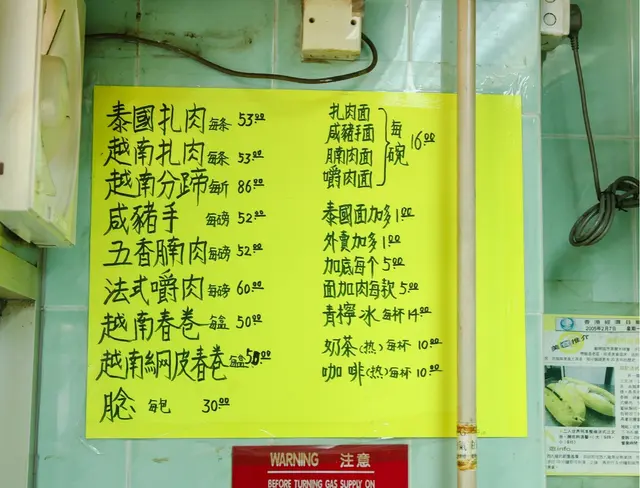 泰國扎肉每条 53.00
越南扎肉每条 53.00
越南分蹄每斤 86.00
咸豬手 每磅 52.00
五香腩肉每磅 52.00
法式嚼肉每磅 60.00
越南春卷每盒 50.00
越南網皮春卷每盒50.00
腍 每包 30.00
扎肉面
咸豬手面
腩肉面
嚼肉面
每碗 16.00
泰國面加多1.00
外賣加多1.00
加底每个5.00
面加肉每款5.00
青檸冰每杯14.00
奶茶(热)每杯10.00
咖啡(热)每杯10.00
WARNING 注意
BEFORE TURNING GAS SUPPLY ON
香港經濟日報
2005年2月7日 星期一
美食推介